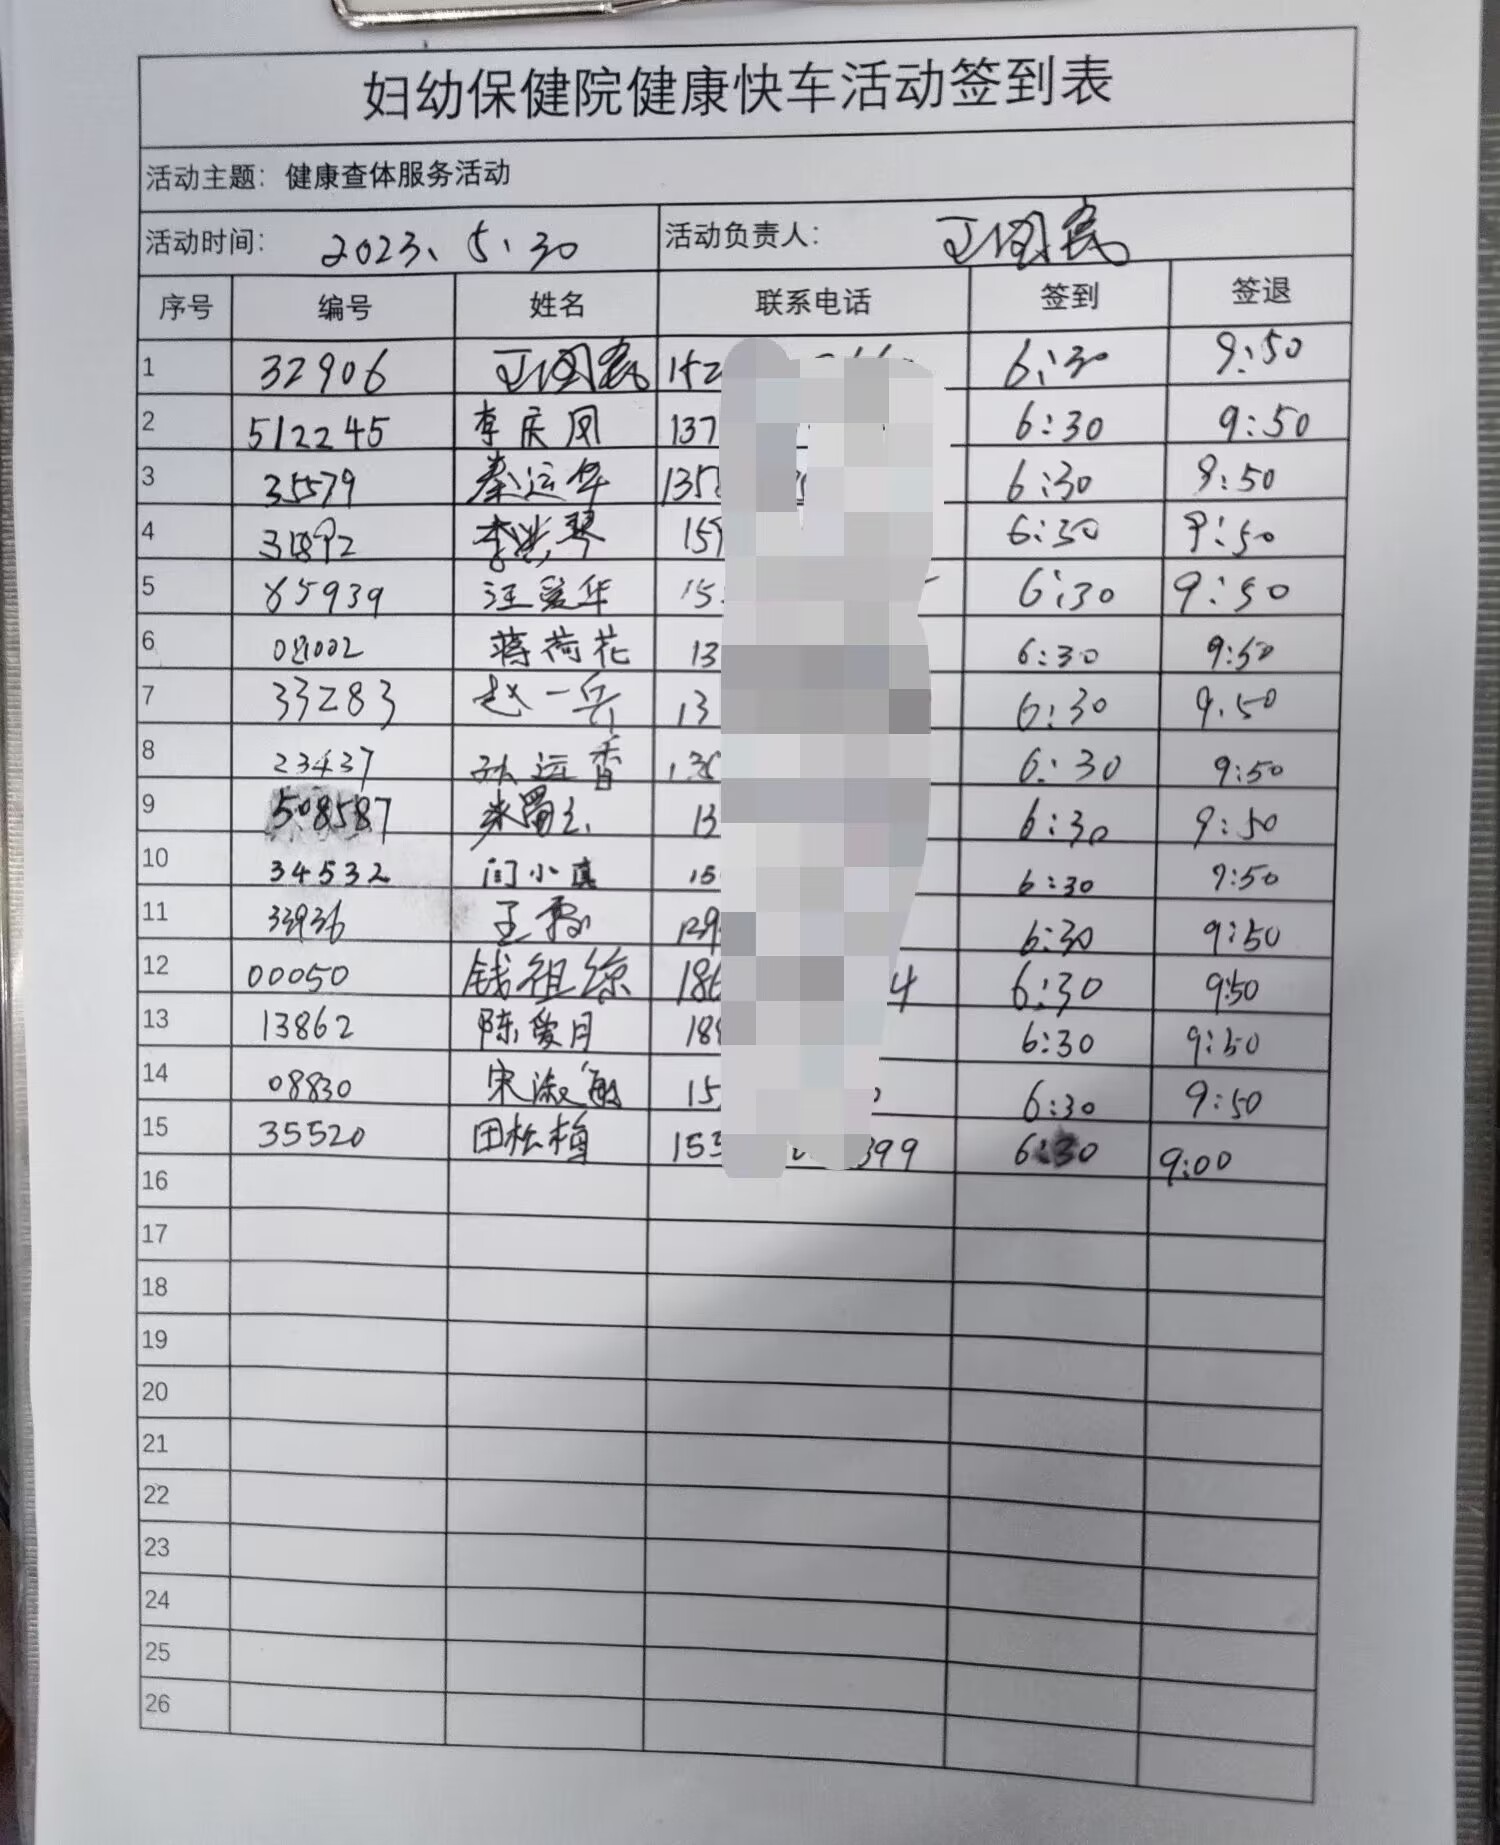 妇幼保健院健康快车活动签到表
活动主题：健康查体服务活动
活动时间： 2023、5、30 活动负责人：
序号 编号 姓名 联系电话 签到 签退
1 32906 152 6:30 9:50
2 512245 李庆凤 137 6:30 9:50
3 35579 秦运华 135 6:30 9:50
4 31892 琴 159 6:30 9:50
5 85939 汪爱华 15 6:30 9:50
6 08002 蒋荷花 13 6:30 9:50
7 33283 赵一兵 13 6:30 9.50
8 23437 孙远香 130 6:30 9:50
9 508587 13 6:30 9:50
10 34532 闫小真 15 6:30 9:50
11 33936 王 6:30 9:50
12 00050 钱祖综 186 4 6:30 9:50
13 13862 陈爱月 188 6:30 9:50
14 08830 宋淑敏 15 6:30 9:50
15 35520 田松梅 155 399 6:30 9:00
16
17
18
19
20
21
22
23
24
25
26